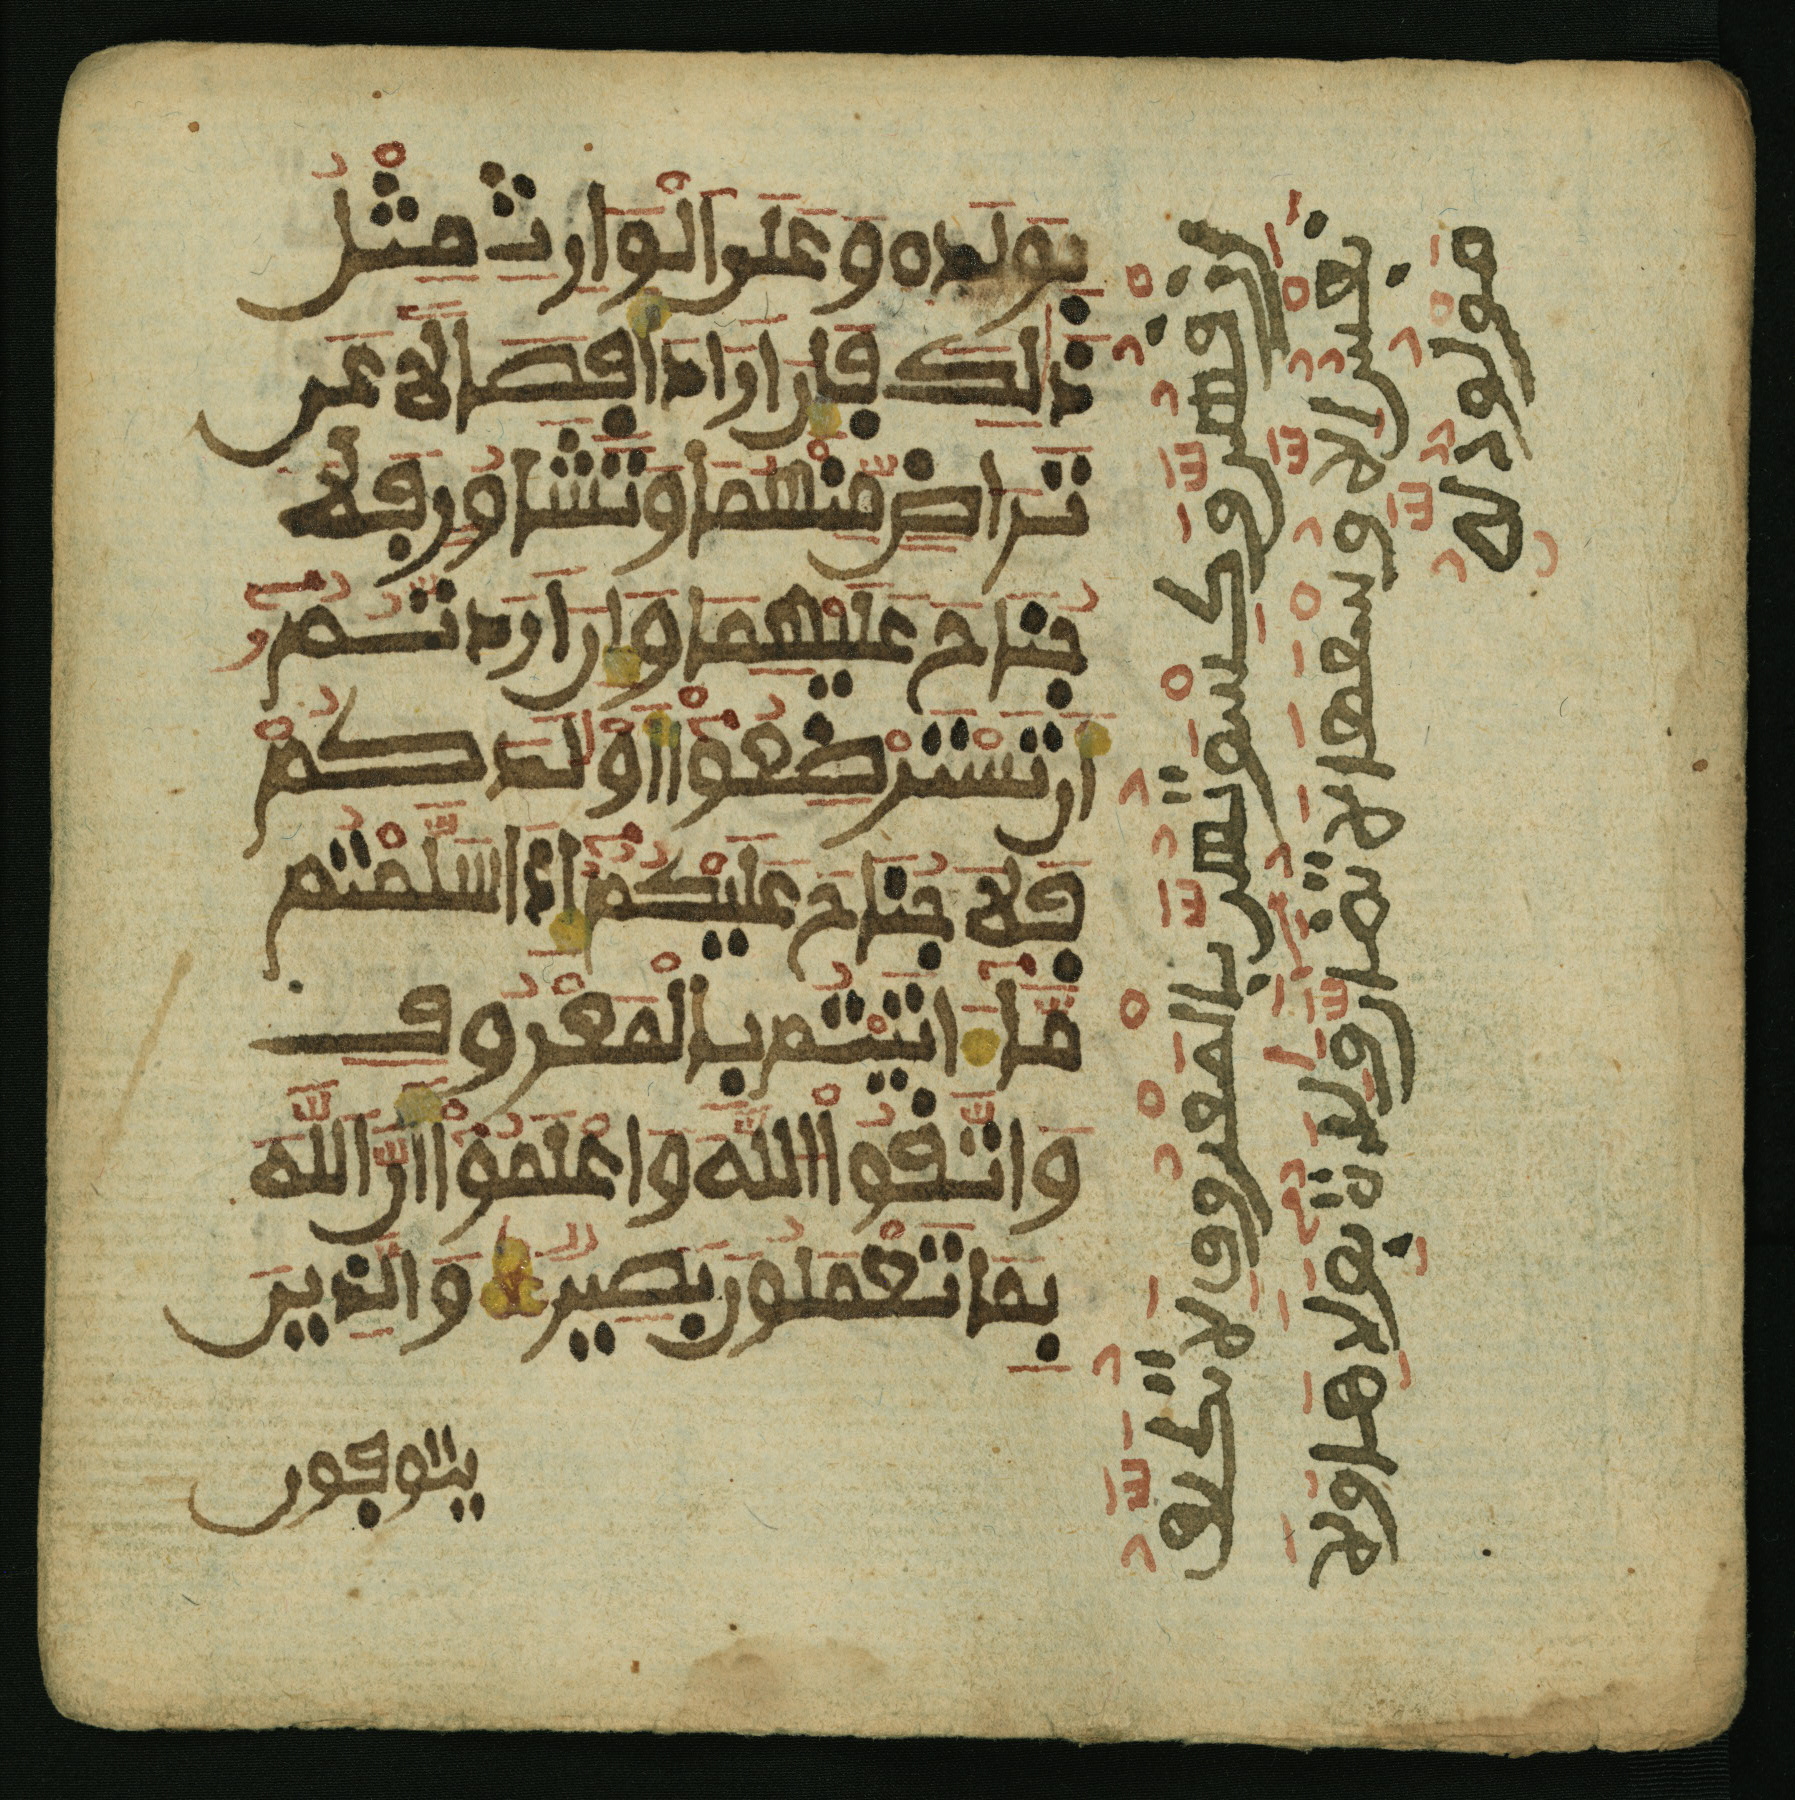 بولده وعلى الوارث مثل
ذلك فان ارادا فصالا عن
تراض منهما وتشاور فلا
جناح عليهما وان اردتم
ان تسترضعوا اولدكم
فلا جناح عليكم اذا سلمتم
ما اتيتم بالمعروف
واتقوا الله واعلموا ان الله
بما تعملون بصير والذين
يتوفون
رزقهن وكسوتهن بالمعروف لا تكلف
نفس الا وسعها لا تضار ولدة بولدها ولا
مولود له